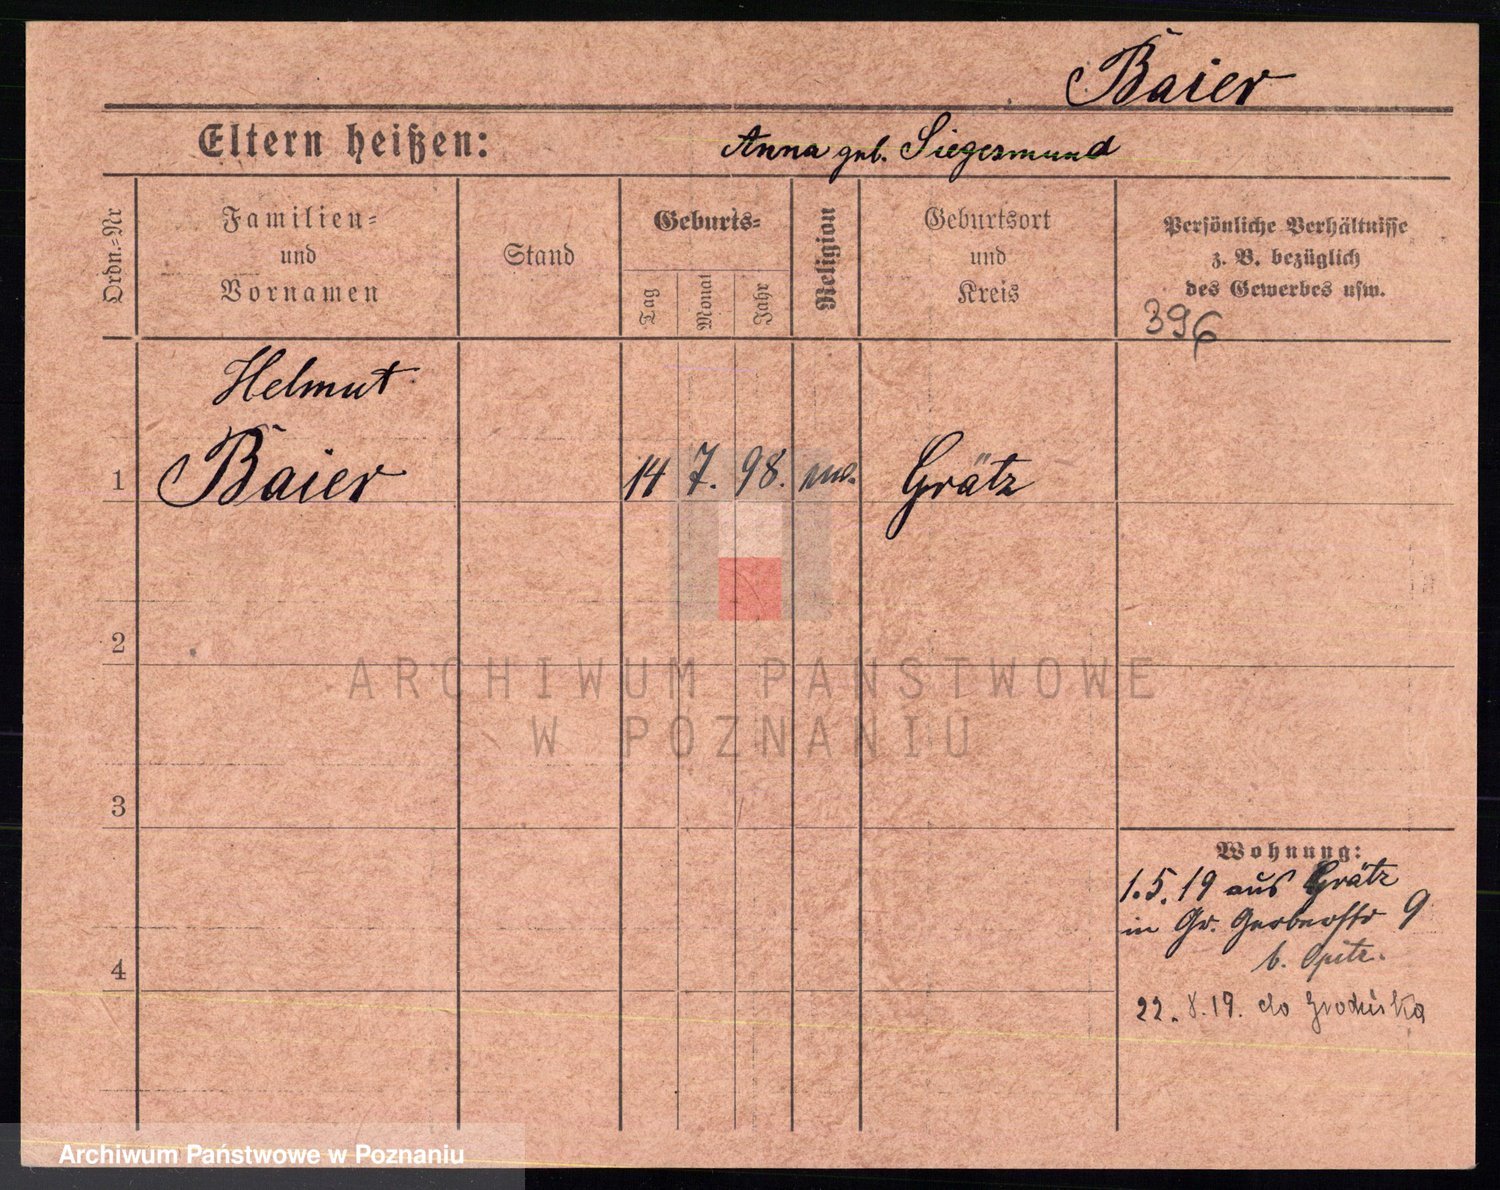 Baier
Eltern heißen:
Anna geb. Siegesmund
Ordn.=Nr
Familien=
und
Vornamen
Stand
Geburts=
Tag
Monat
Jahr
Religion
Geburtsort
und
Kreis
Persönliche Verhältnisse
z. B. bezüglich
des Gewerbes usw.
396
Helmut
1 Baier 14 7. 98. Grätz
2
3
4
Wohnung:
1.5.19 aus Grätz
in Gr. Gerberstr 9
b. Opitz.
22.8.19. do Grodziska
ARCHIWUM PAŃSTWOWE
W POZNANIU
Archiwum Państwowe w Poznaniu